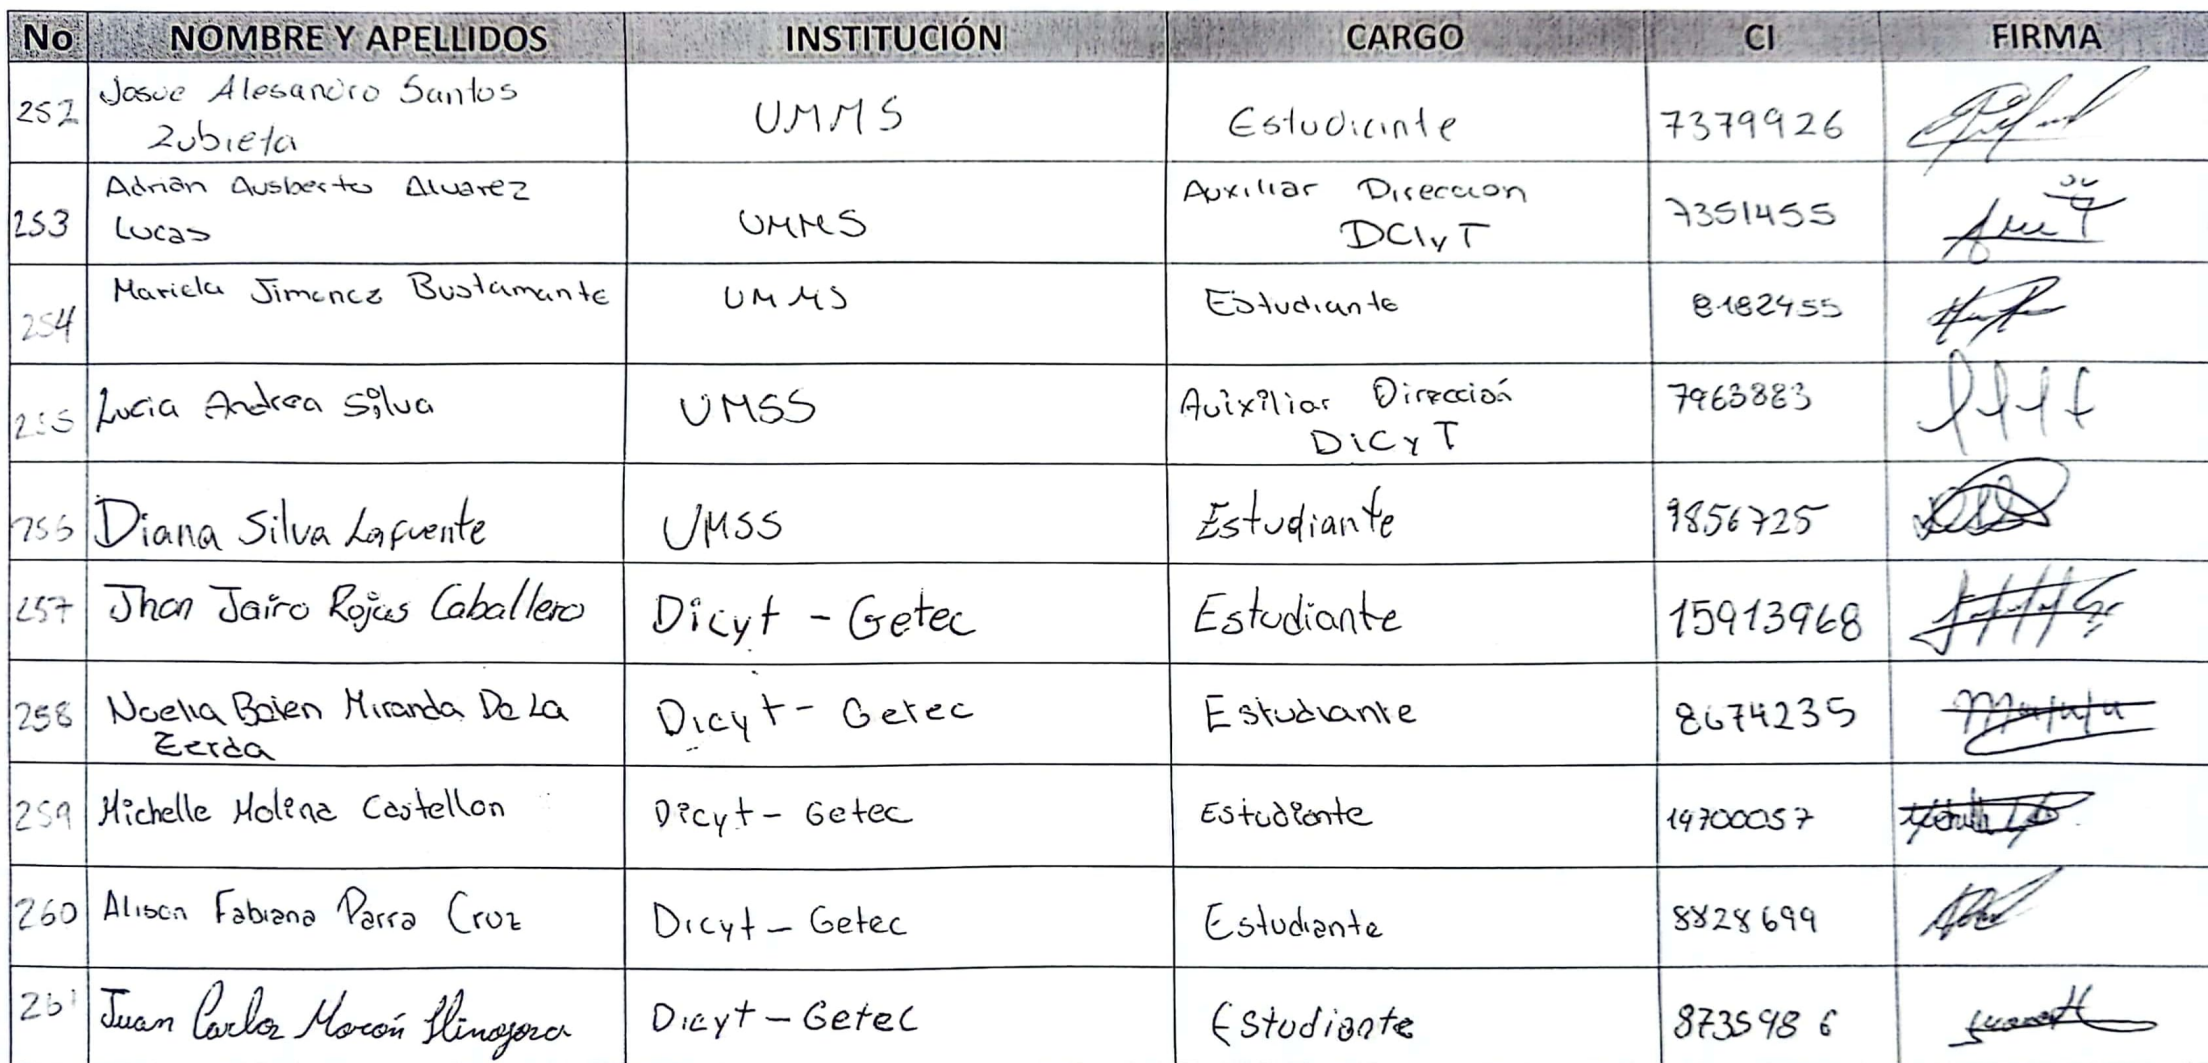 No NOMBRE Y APELLIDOS INSTITUCIÓN CARGO CI FIRMA
252 Josue Alesandro Santos Zubieta UMMS Estudiante 7379926
253 Adrian Ausberto Alvarez Lucas UMMS Auxiliar Direccion DCIyT 7351455
254 Mariela Jimenez Bustamante UMMS Estudiante 8182455
255 Lucia Andrea Silva UMSS Auixiliar Dirección DiCyT 7963883
256 Diana Silva Lafuente UMSS Estudiante 9856725
257 Jhon Jairo Rojas Caballero Dicyt - Getec Estudiante 15913968
258 Noelia Belen Miranda De La Zerda Dicyt - Getec Estudiante 8674235
259 Michelle Molina Castellon Dicyt - Getec Estudiante 14700057
260 Alison Fabiana Parra Cruz Dicyt - Getec Estudiante 8828699
261 Juan Carlos Morón Hinojosa Dicyt - Getec Estudiante 8735986